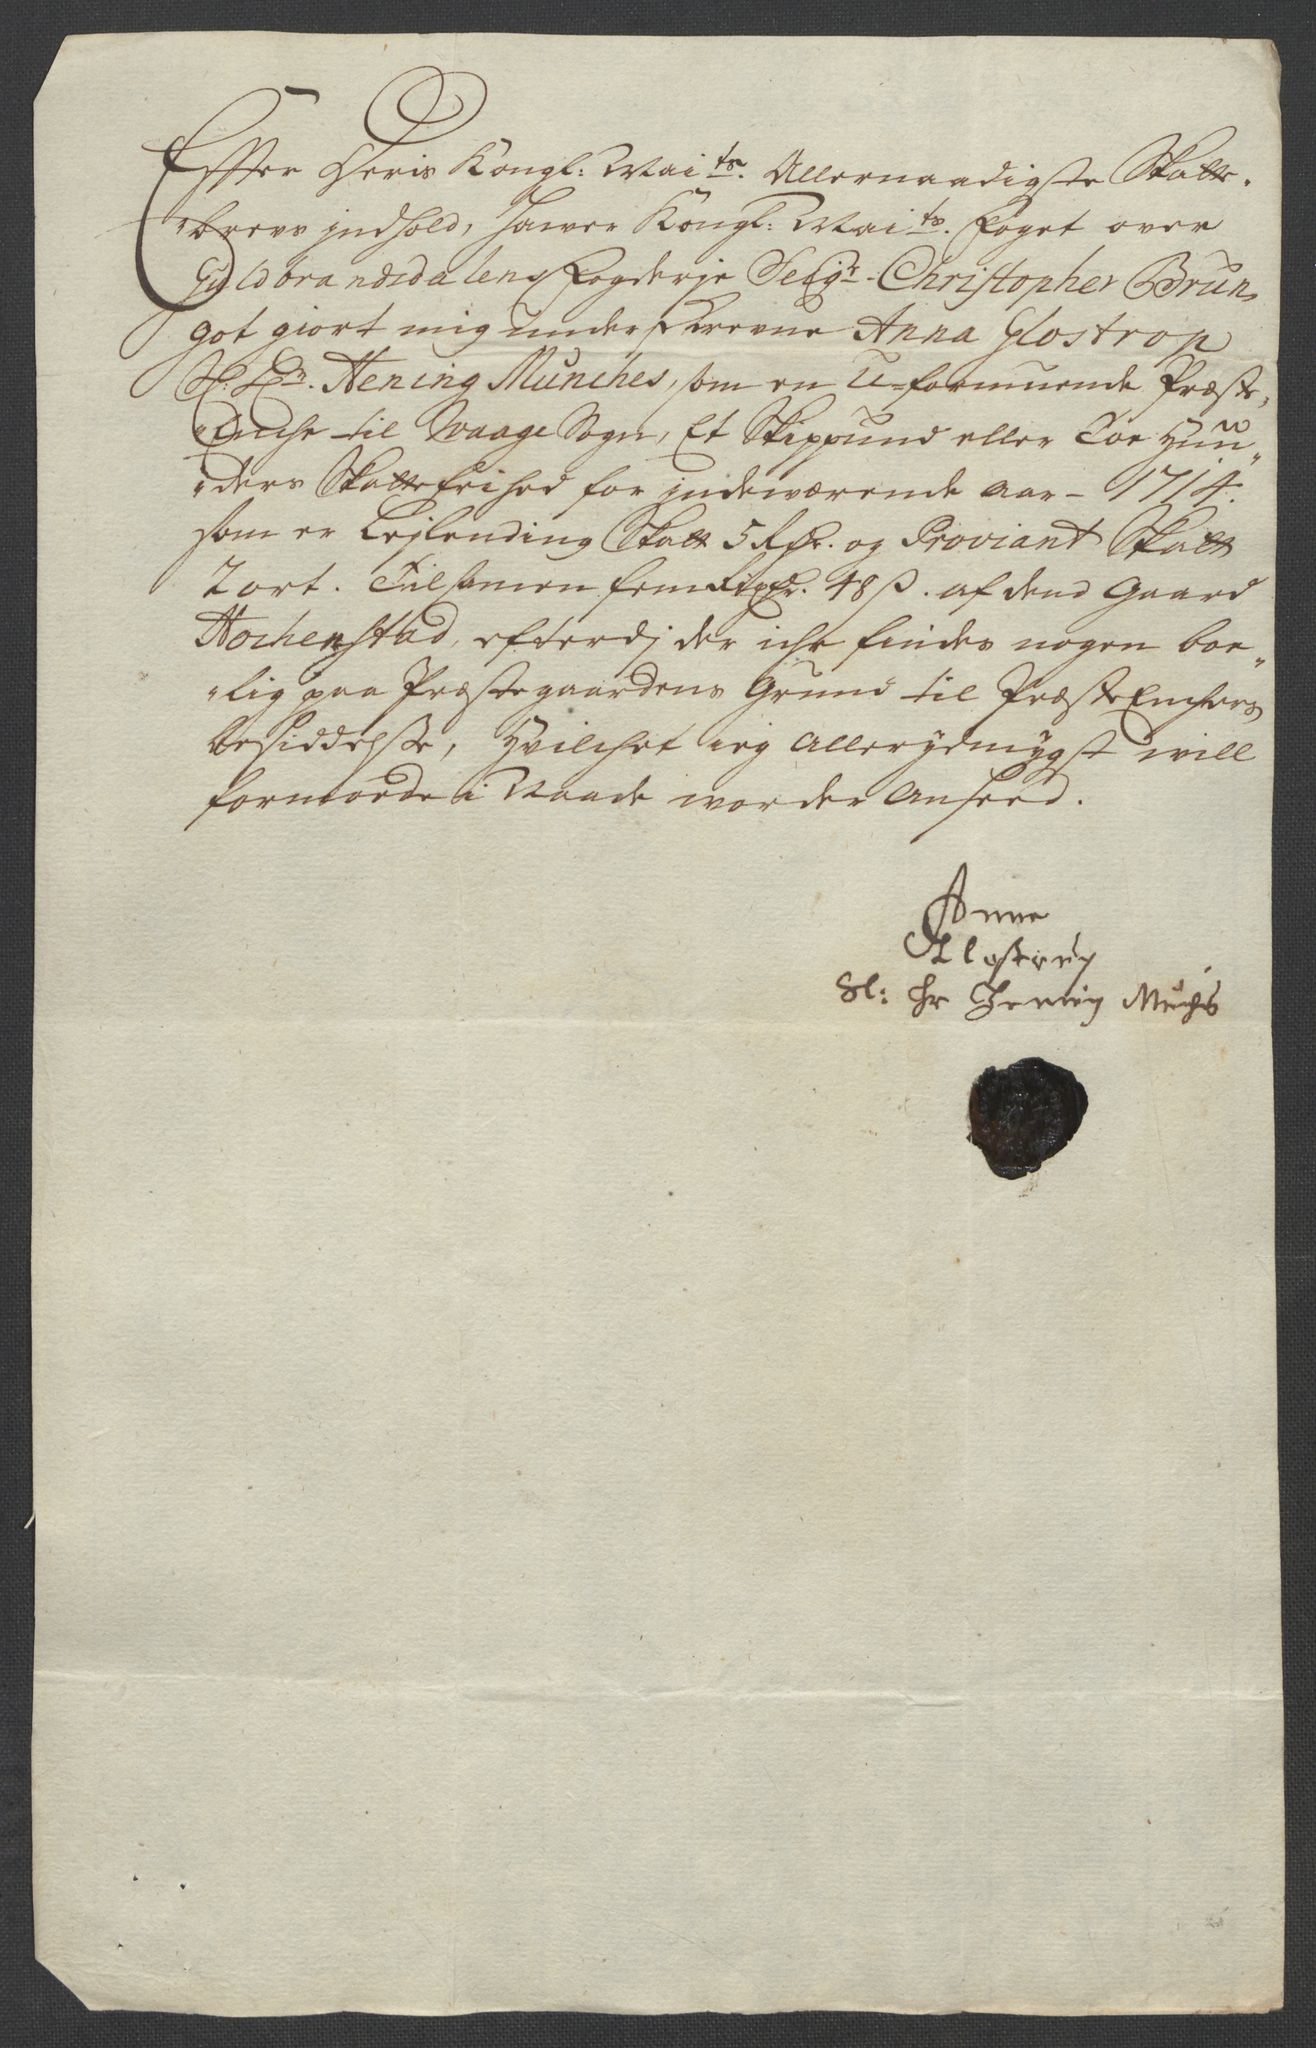 Efter Deris Kongl: Mai ts. Allernaadigste Skatte-
brevs jndhold, hawer Kongl: Mai ts. Foget over
Guldbrandsdalens Fogderje Seigr. Christopher Brun,
got giort mig underschrevne Anna Glostrop
Sl: Hr. Hening Munches, som en U-formuende Præste,
"Enche til Waage Sogn, Et Skippund eller Toe Huu"
"ders Skatte frihed for jndewærende Aar - 1714.
som er Lejlending Skatt 5 Rdr. og Proviant Skatt
2 ort. Tilsamen fem Rixdr. 48 ß. af dend Gaard
Hochenstad, efterdj der iche findes nogen boe"
"lig paa Præstegaardens Grund til Præste Enchers
besiddelsse, Hvilchet ieg Allerydmygst will
formoede i Naade worder Anseed.
Anne
Glostrup
Sl: Hr Hening Munchs